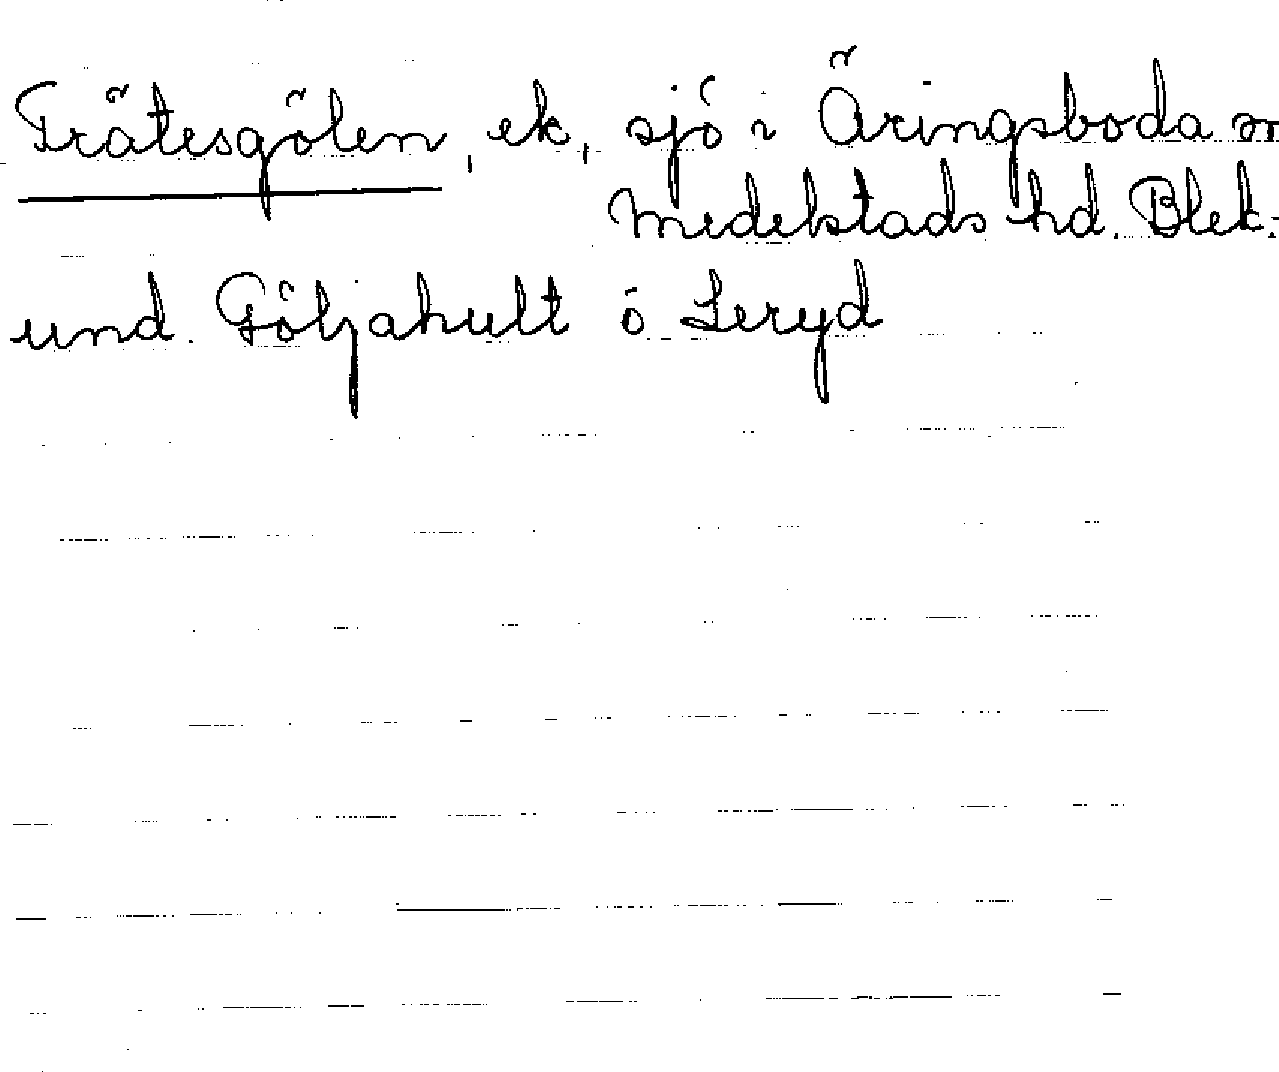 Trätesgölen, ek, sjö i Äringsboda sn
Medelstads hd. Blek.
und. Göljahult o. Leryd